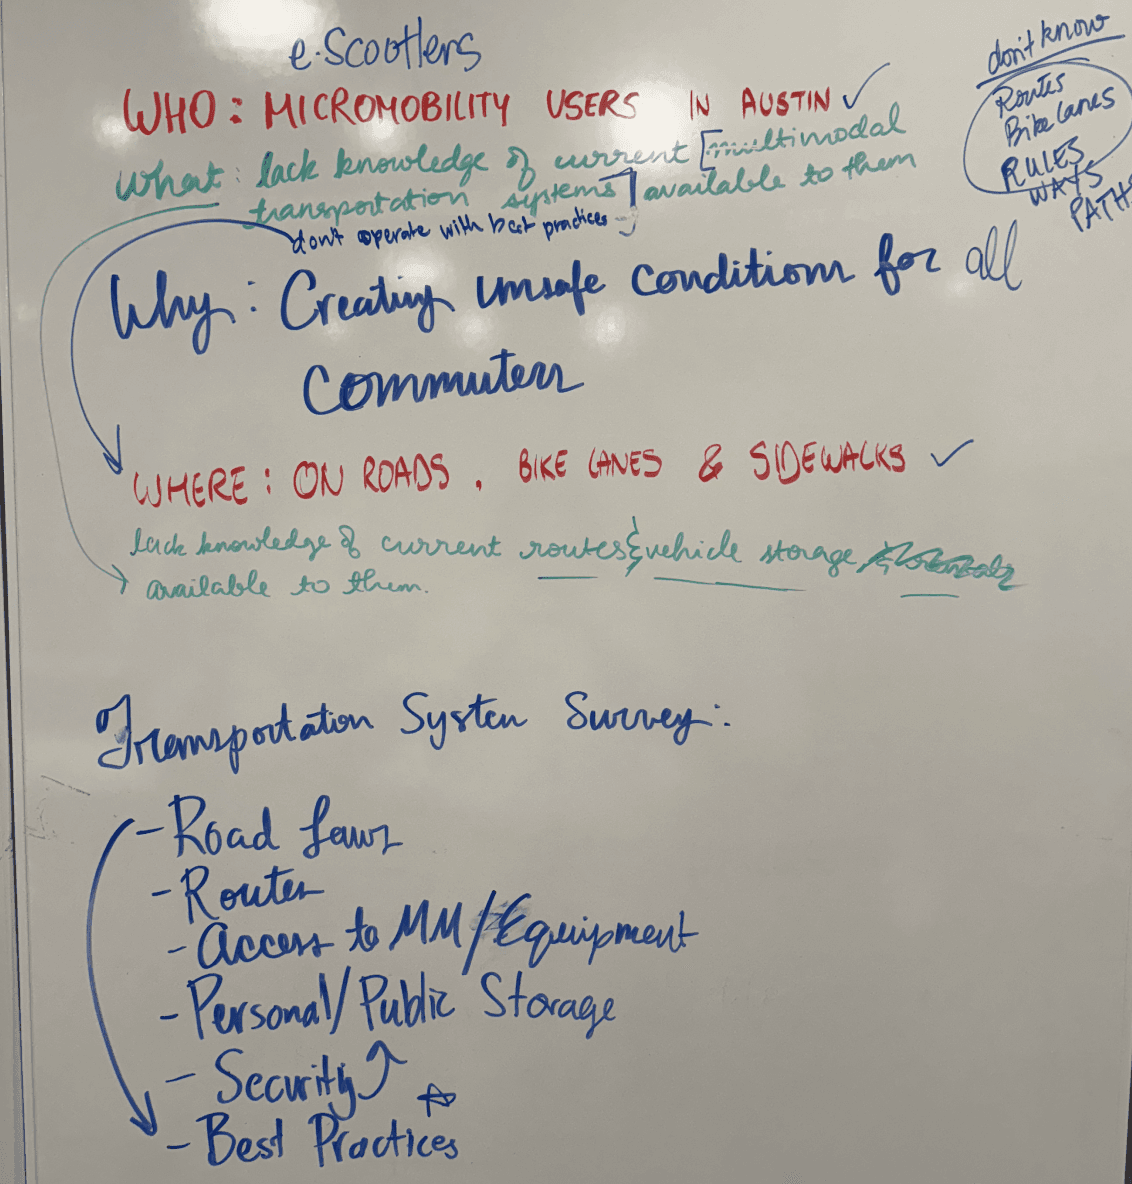 e-Scooters
WHO: MICROMOBILITY USERS IN AUSTIN ✓
What: lack knowledge of current [multimodal
transportation systems] available to them
don't operate with best practices
don't know
Routes
Bike Lanes
RULES
WAYS
PATHS
Why: Creating unsafe conditions for all
Commuters
WHERE: ON ROADS, BIKE LANES & SIDEWALKS ✓
lack knowledge of current routes & vehicle storage
available to them.
Transportation System Survey:
- Road Laws
- Routes
- Access to MM/Equipment
- Personal/Public Storage
- Security
- Best Practices